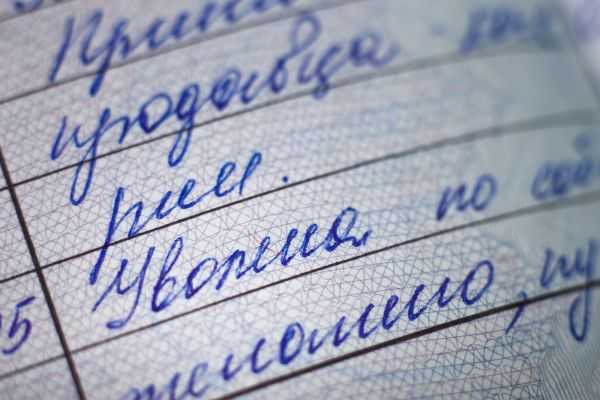 Прин
продавца - кас
рии.
Уволена по соб
05 желанию, пу